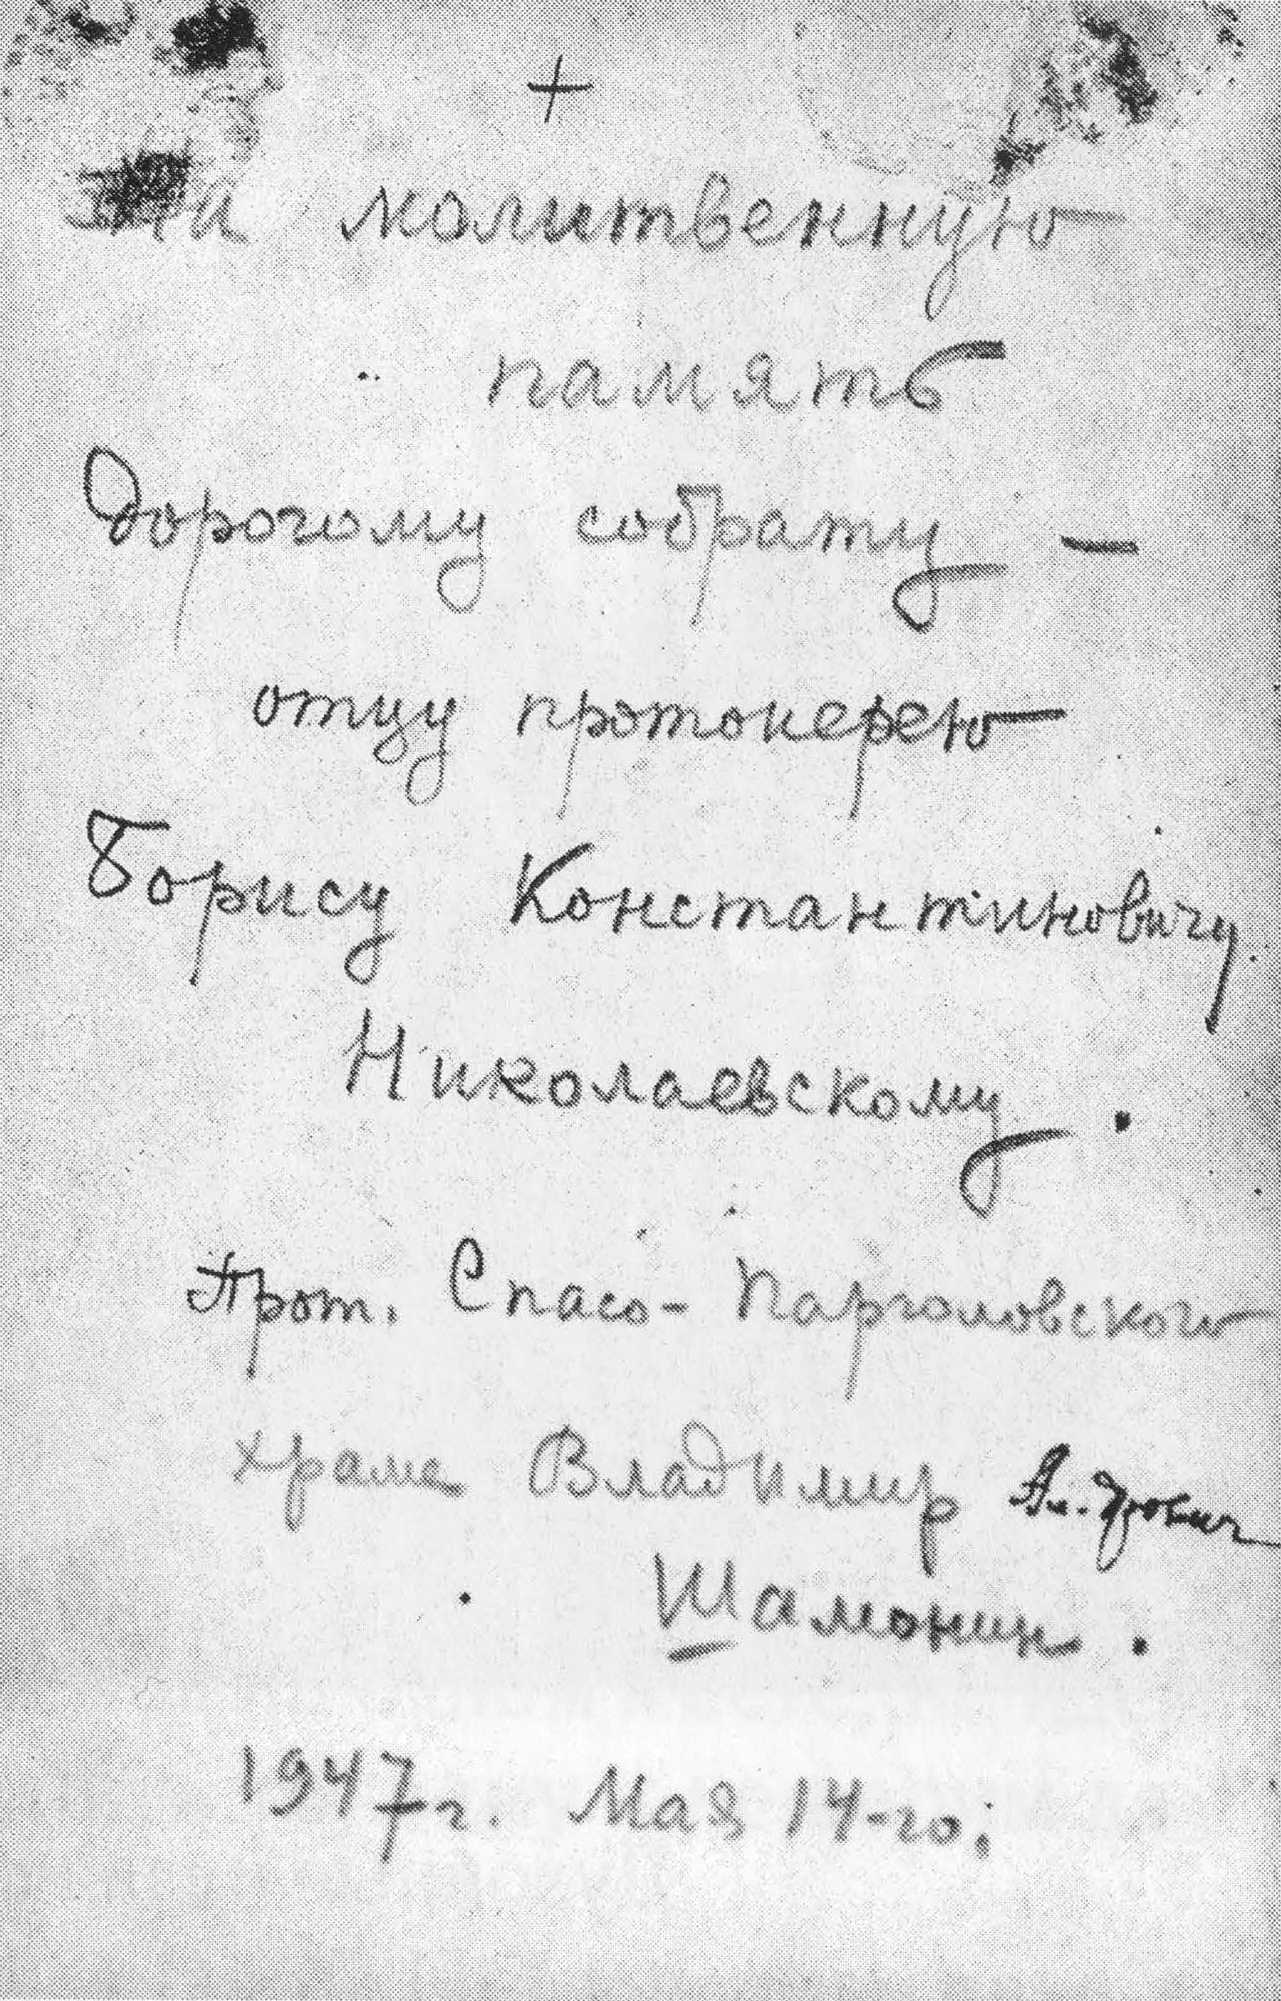 +
На молитвенную
память
Дорогому собрату —
отцу протоиерею
Борису Константиновичу
Николаевскому.
Прот. Спасо-Парголовского
храма Владимир Ал-дрович
Шамонин.
1947 г. Мая 14-го.